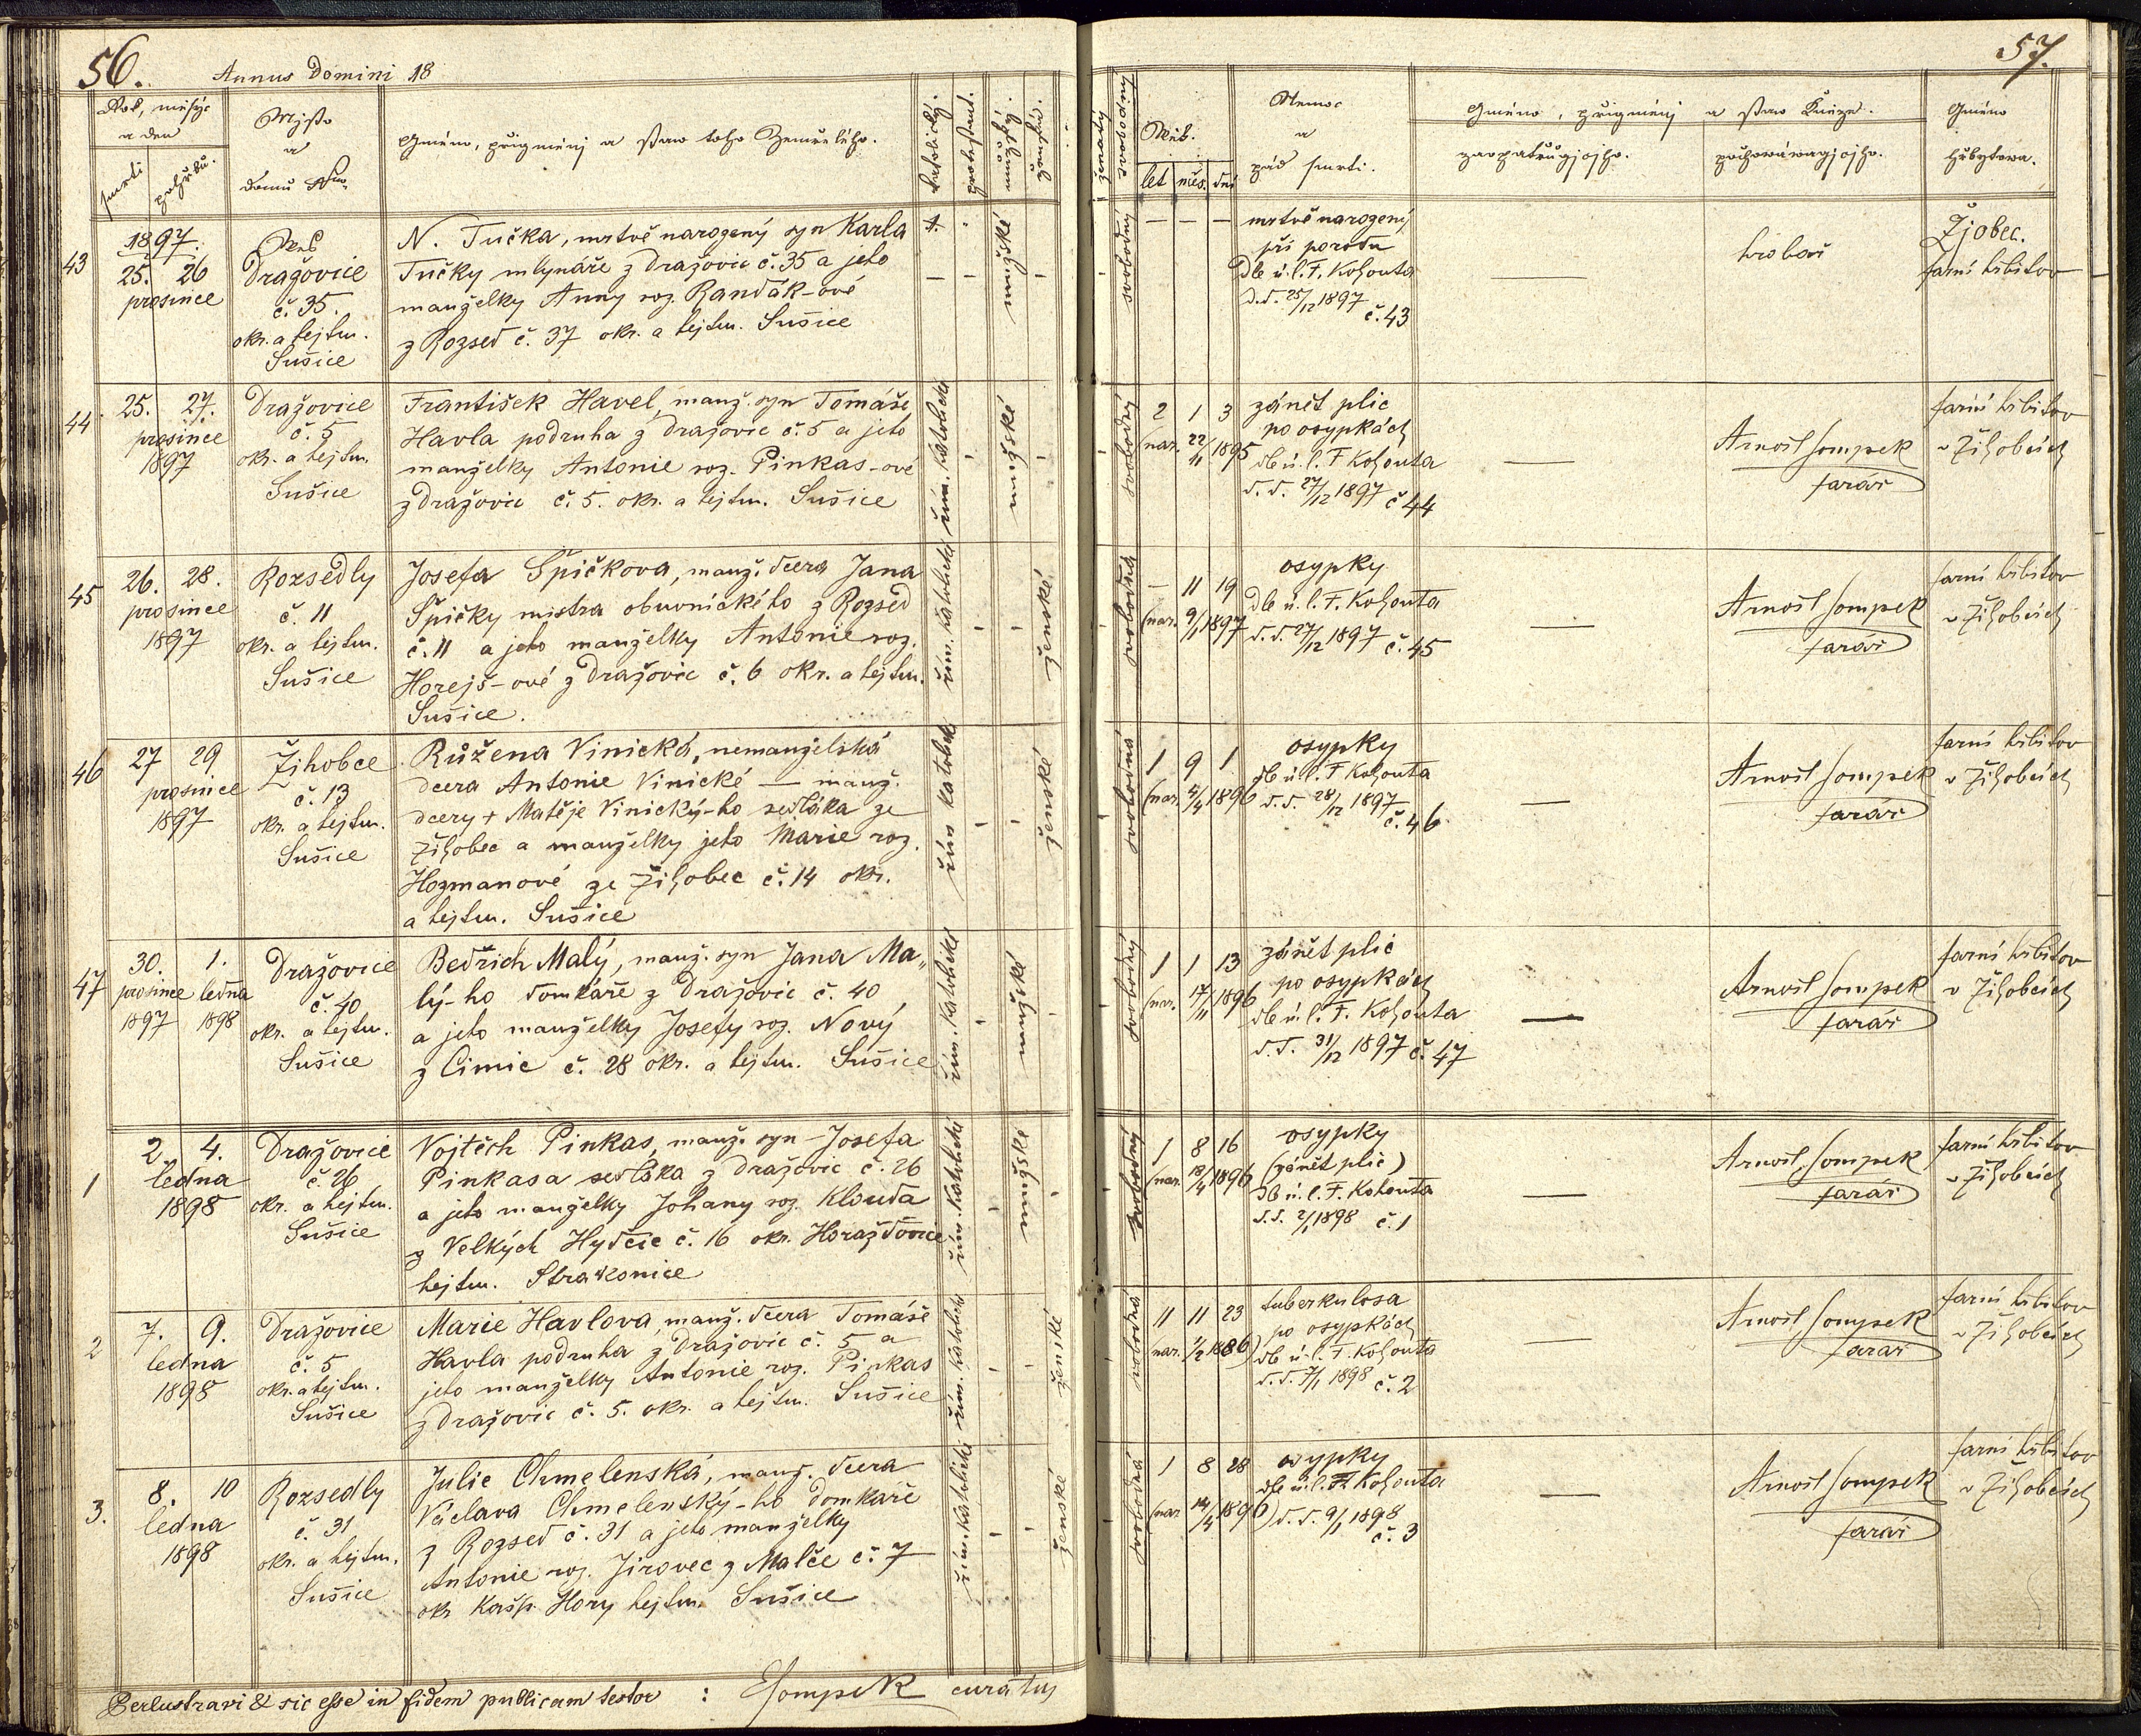 56.
Annus Domini 18
57.
Rok, měsýc
a den
smrti
pohřbu.
Mjsto
a
domu
Gméno, přigménj a staw toho Zemřelého.
katolický.
protestant.
mužský.
ženský.
ženatý
svobodný
Wěk.
let
měs.
dní
Nemoc
a
pád smrti.
Gméno, přigménj a staw Kněze.
zaopatřugjcjho.
pochowáwagjcjho.
Gméno
hřbytowa.
43
1897.
25. 26
prosince
Dražovice
č. 35.
okr. a hejtm.
Sušice
N. Tučka, mrtvě narozený syn Karla
Tučky mlynáře z Dražovic č. 35 a jeho
manželky Anny roz. Randák-ové
z Rozsed č. 37 okr. a hejtm. Sušice
mužské
svobodný
— — —
mrtvě narozený
při porodu
Dle ú. l. F. Kohouta
d. d. 25/12 1897
č. 43
—
hrobař
Žjobec.
farní hřbitov
44
25. 27.
prosince
1897
Dražovice
č. 5
okr. a hejtm.
Sušice
František Havel, manž. syn Tomáše
Havla podruha z Dražovic č. 5 a jeho
manželky Antonie roz. Pinkas-ové
z Dražovic č. 5. okr. a hejtm. Sušice
řím. katolické
mužské
svobodný
2 1 3
(nar. 22/11 1895
zánět plic
po osypkách
dle ú. l. F Kohouta
d. d. 27/12 1897 č 44
—
Arnošt Sompek
farář
farní hřbitov
v Žihobcích
45
26. 28.
prosince
1897
Rozsedly
č. 11
okr. a hejtm.
Sušice
Josefa Špičkova, manž. dcera Jana
Špičky mistra obuvnického z Rozsed
č. 11 a jeho manželky Antonie roz.
Horejš-ové z Dražovic č. 6 okr. a hejtm.
Sušice.
řím. katolické
ženské
svobodná
— 11 19
(nar. 9/1 1897
osypky
Dle ú. l. F. Kohouta
d. d. 27/12 1897 č. 45
—
Arnošt Sompek
farář
farní hřbitov
v Žihobcích
46
27 29
prosince
1897
Žihobce
č. 13
okr. a hejtm.
Sušice
Růžena Vinická, nemanželská
dcera Antonie Vinické — manž.
dcery + Matěje Vinický-ho sedláka ze
Žihobec a manželky jeho Marie roz.
Hozmanové ze Žihobec č. 14 okr.
a hejtm. Sušice
řím katolické
ženské
svobodná
1 9 1
(nar. 4/4 1896
osypky
dle ú. l. F Kohouta
d. d. 28/12 1897
č. 46
—
Arnošt Sompek
farář
farní hřbitov
v Žihobcích
47
30. 1.
prosince ledna
1897 1898
Dražovice
č. 40
okr. a hejtm.
Sušice
Bedřich Malý, manž. syn Jana Ma„
lý-ho domkáře z Dražovic č. 40
a jeho manželky Josefy roz. Nový
z Cimic č. 28 okr. a hejtm. Sušice
řím. katolické
mužské
svobodný
1 1 13
(nar. 17/11 1896
zánět plic
po osypkách
dle ú. l. F. Kohouta
d. d. 31/12 1897 č. 47
—
Arnošt Sompek
farář
farní hřbitov
v Žihobcích
1
2 4.
ledna
1898
Dražovice
č. 26
okr. a hejtm.
Sušice
Vojtěch Pinkas, manž. syn Josefa
Pinkasa sedláka z Dražovic č. 26
a jeho manželky Johany roz. Klouda
z Velkých Hydčic č. 16 okr. Horažďovice
hejtm. Strakonice
řím. katolické
mužské
svobodný
1 8 16
(nar. 18/4 1896
osypky
(zánět plic)
dle ú. l. F. Kohouta
d. d. 2/1 1898 č. 1
—
Arnošt Sompek
farář
farní hřbitov
v Žihobcích
2
7. 9.
ledna
1898
Dražovice
č. 5
okr. a hejtm.
Sušice
Marie Havlova, manž. dcera Tomáše
Havla podruha z Dražovic č. 5 a
jeho manželky Antonie roz. Pinkas
z Dražovic č. 5. okr. a hejtm. Sušice
řím. katolické
ženské
svobodná
11 11 23
(nar. 1/2 1886)
tuberkulosa
po osypkách
dle ú. l. F. Kohouta
d. d. 7/1 1898 č. 2
—
Arnošt Sompek
farář
farní hřbitov
v Žihobcích
3.
8. 10
ledna
1898
Rozsedly
č. 31
okr. a hejtm.
Sušice
Julie Chmelenská, manž. dcera
Václava Chmelenský-ho domkáře
z Rozsed č. 31 a jeho manželky
Antonie roz. Jirovec z Malče č. 7
okr. Kašp. Hory hejtm. Sušice
řím. katolické
ženské
svobodná
1 8 28
(nar. 10/4 1896)
osypky
dle ú. l. F Kohouta
d. d. 9/1 1898
č. 3
—
Arnošt Sompek
farář
farní hřbitov
v Žihobcích
Perlustravi & sic esse in fidem publicam testor : ASompek curatus